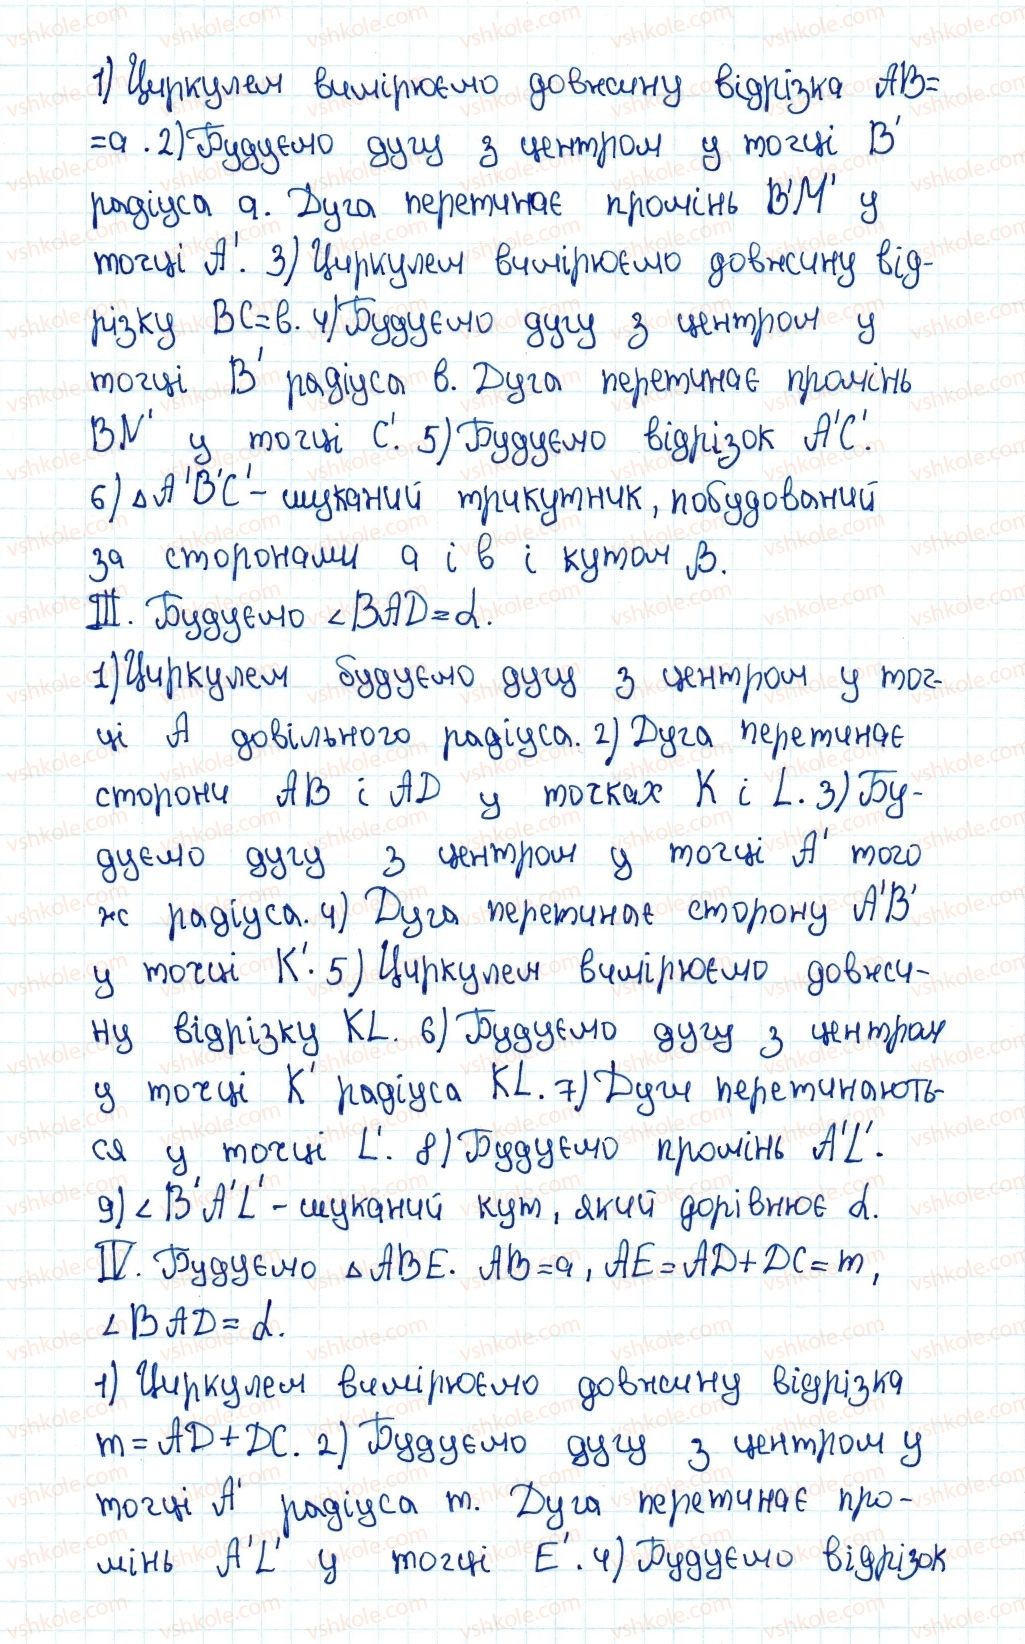 1) Циркулем вимірюємо довжину відрізка AB=
=a. 2) Будуємо дугу з центром у точці B'
радіуса a. Дуга перетинає промінь B'M' у
точці A'. 3) Циркулем вимірюємо довжину від-
різку BC=в. 4) Будуємо дугу з центром у
точці B' радіуса в. Дуга перетинає промінь
BN' у точці C'. 5) Будуємо відрізок A'C'.
6) △A'B'C' - шуканий трикутник, побудований
за сторонами a і в і кутом β.
III. Будуємо ∠BAD=α.
1) Циркулем будуємо дугу з центром у точ-
ці A довільного радіуса. 2) Дуга перетинає
сторони AB і AD у точках K і L. 3) Бу-
дуємо дугу з центром у точці A' того
ж радіуса. 4) Дуга перетинає сторону A'B'
у точці K'. 5) Циркулем вимірюємо довжи-
ну відрізку KL. 6) Будуємо дугу з центром
у точці K' радіуса KL. 7) Дуги перетинають-
ся у точці L'. 8) Будуємо промінь A'L'.
9) ∠B'A'L' - шуканий кут, який дорівнює α.
IV. Будуємо △ABE. AB=a, AE=AD+DC=m,
∠BAD=α.
1) Циркулем вимірюємо довжину відрізка
m=AD+DC. 2) Будуємо дугу з центром у
точці A' радіуса m. Дуга перетинає про-
мінь A'L' у точці E'. 4) Будуємо відрізок